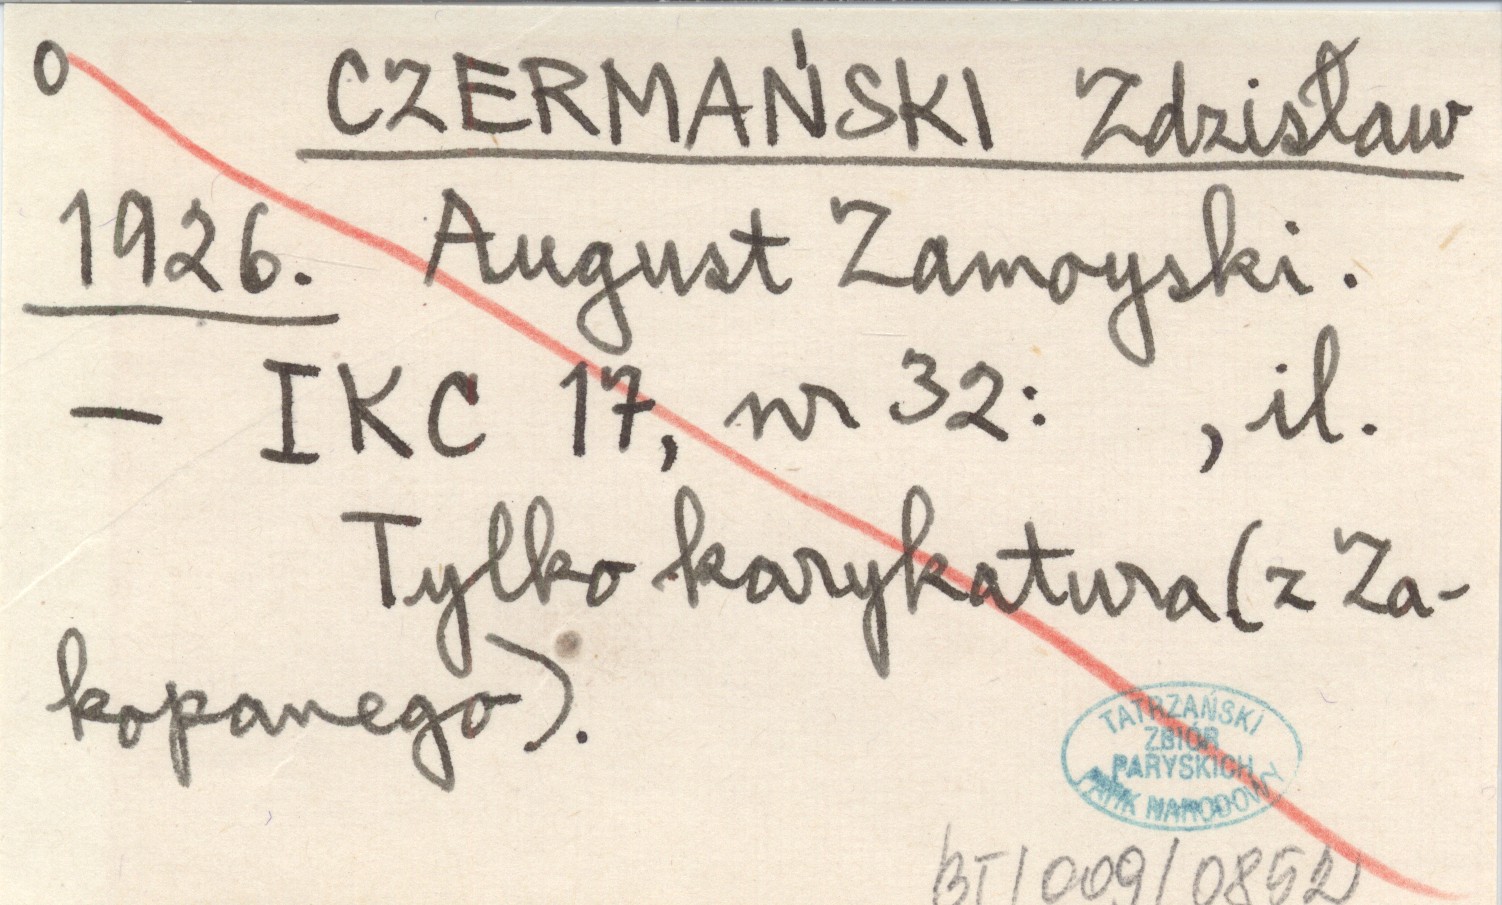 O CZERMAŃSKI Zdzisław
1926. August Zamoyski.
— IKC 17, nr 32: , il.
Tylko karykatura (z Za-
kopanego).
TATRZAŃSKI
ZBIÓR
PARYSKICH
PARK NARODOWY
BT/009/0852